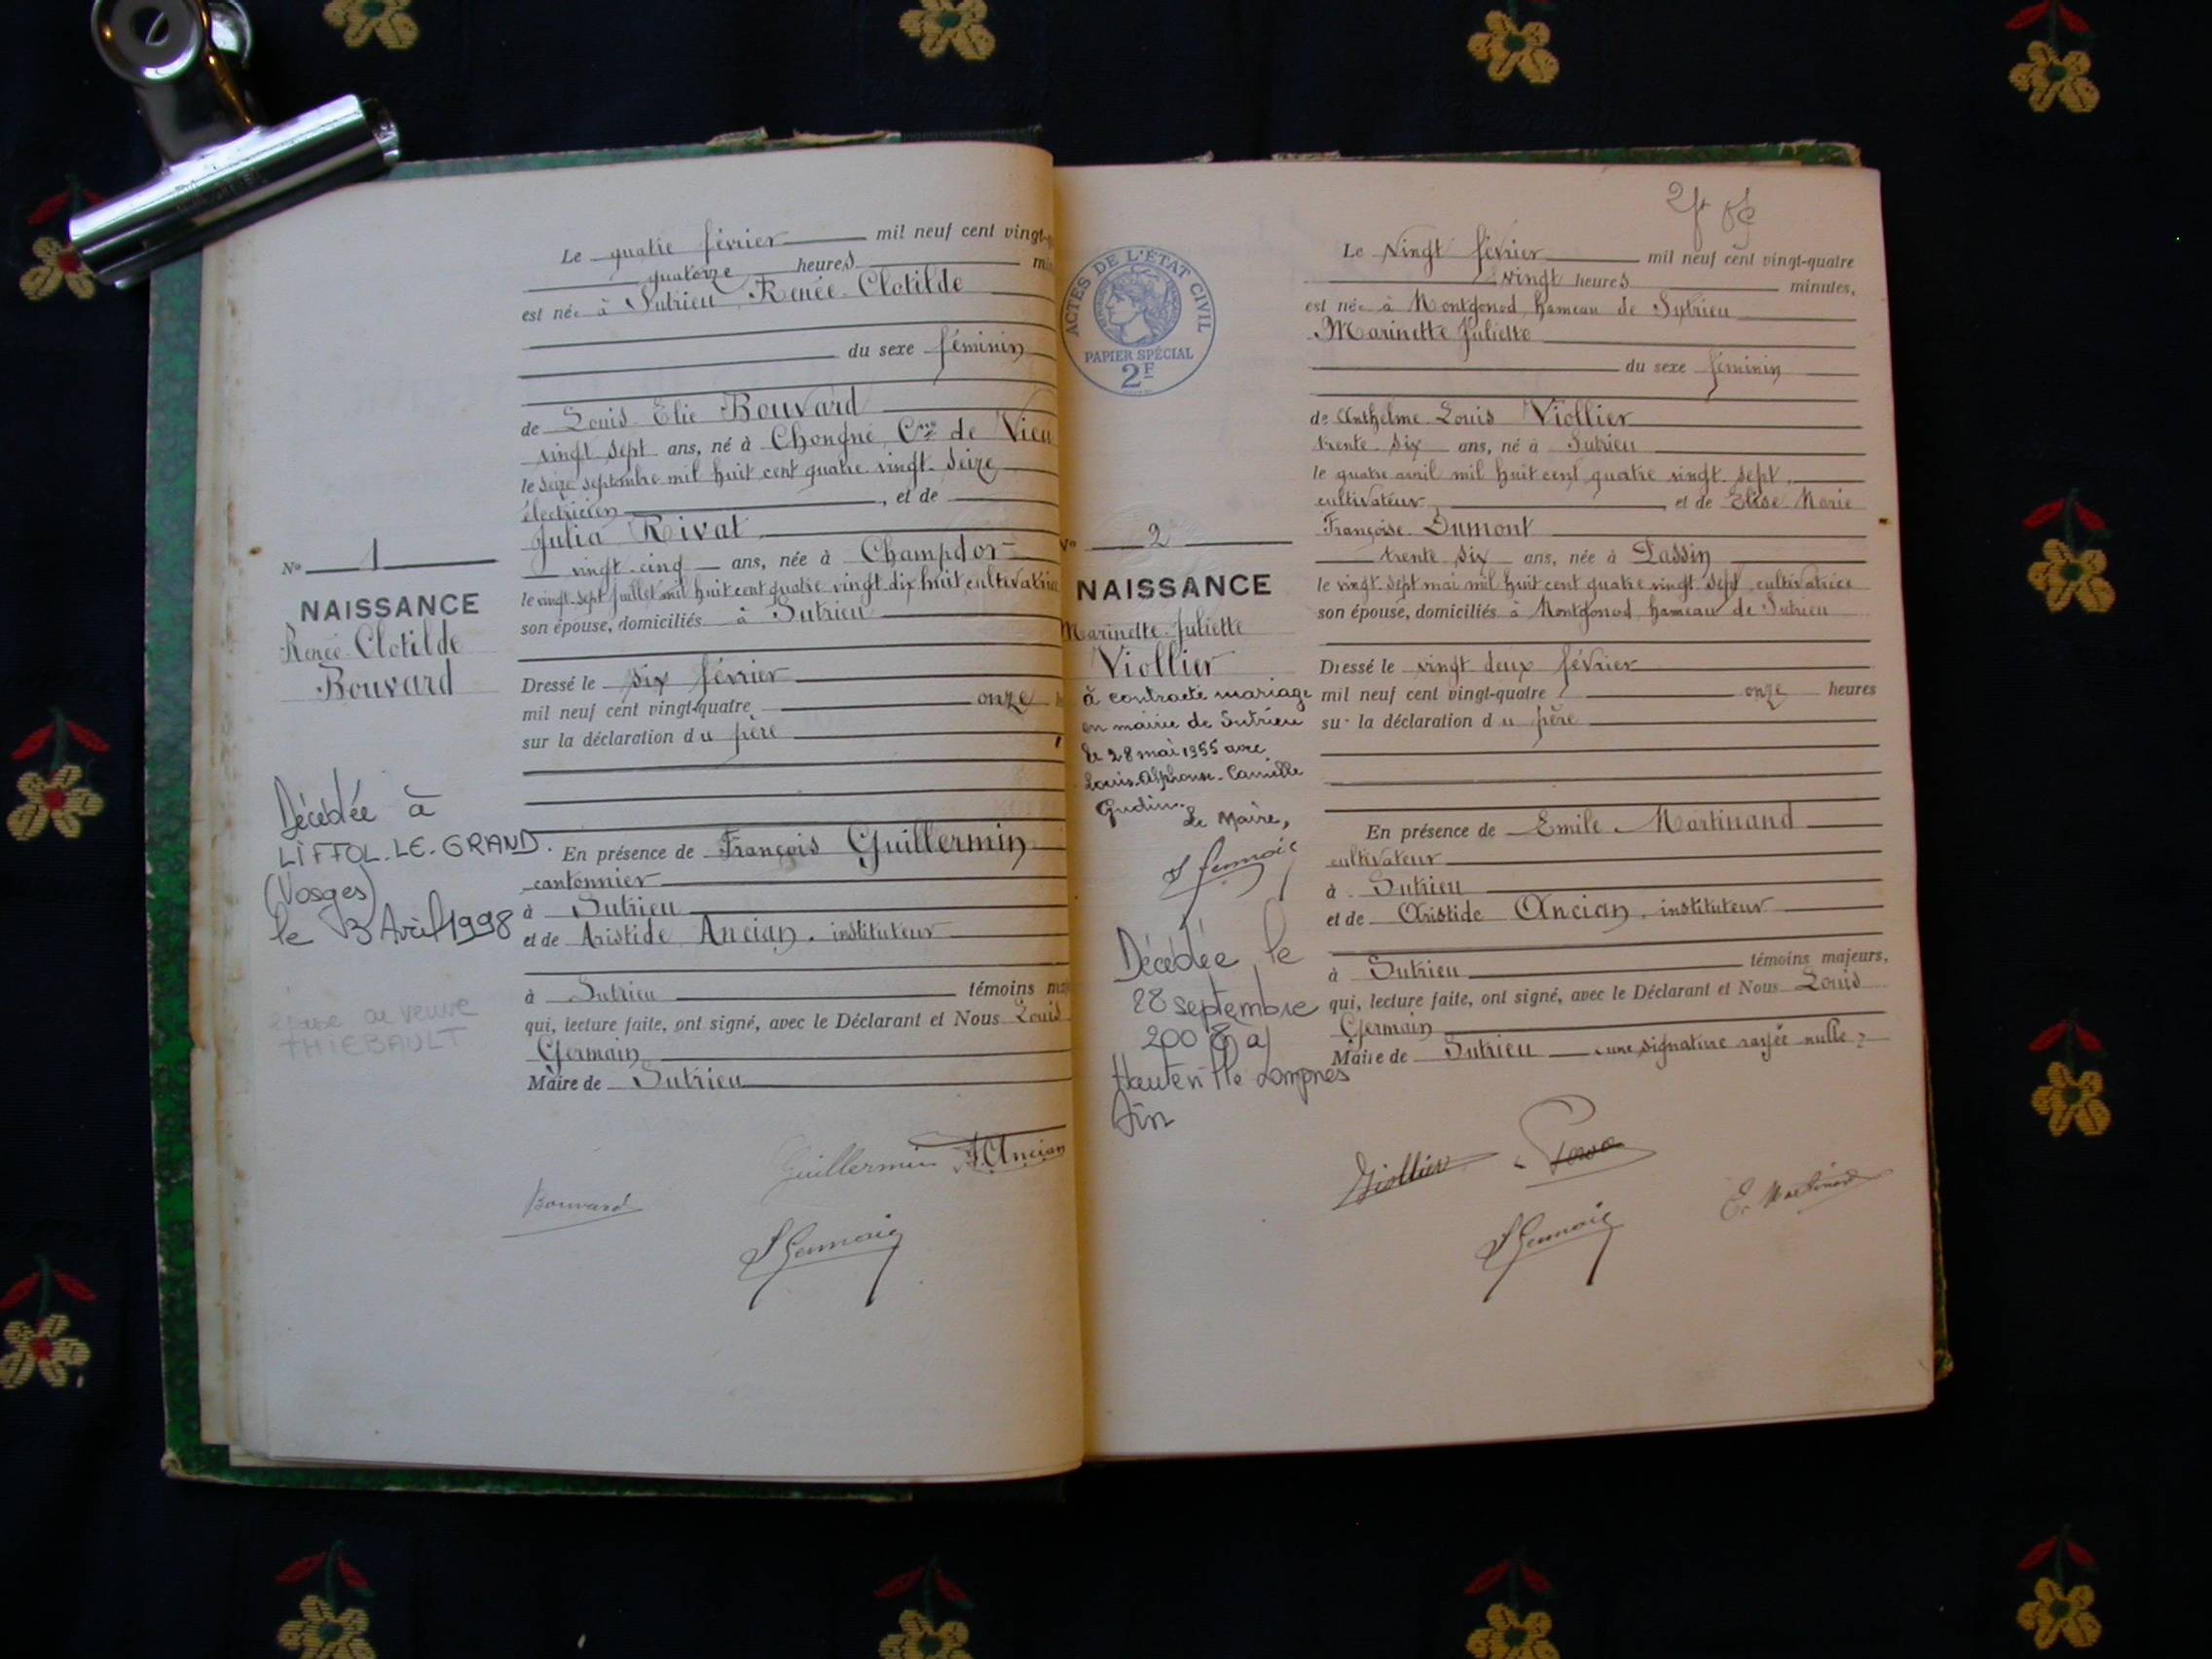 Le quatre février mil neuf cent vingt-
quatorze heures
est née à Sutrieu, Renée Clotilde
du sexe féminin
de Louis Elie Bouvard
vingt sept ans, né à Chongne, Cne de Vieu
le seize septembre mil huit cent quatre vingt seize
électricien, et de
Julia Rivat
vingt cinq ans, née à Champdor
le vingt-sept juillet mil huit cent quatre vingt dix huit, cultivatrice
son épouse, domiciliés à Sutrieu
No 1
NAISSANCE
Renée Clotilde
Bouvard
Dressé le six février
mil neuf cent vingt-quatre onze
sur la déclaration du père
Décédée à
LIFFOL-LE-GRAND.
(Vosges)
le 3 Avril 1998
épouse ou veuve
THIEBAULT
En présence de François Guillermin
cantonnier
à Sutrieu
et de Aristide Ancian, instituteur
à Sutrieu témoins
qui, lecture faite, ont signé, avec le Déclarant et Nous Louis
Germain
Maire de Sutrieu
Guillermin A Ancian
Bouvard
L Germain
ACTES DE L'ÉTAT CIVIL
PAPIER SPÉCIAL
2F
Le Vingt février mil neuf cent vingt-quatre
vingt heures minutes,
est née à Montgonod, hameau de Sutrieu
Marinette Juliette
du sexe féminin
de Anthelme Louis Viollier
trente six ans, né à Sutrieu
le quatre avril mil huit cent quatre vingt sept,
cultivateur, et de Elise Marie
Françoise Dumont
trente six ans, née à Passin
le vingt-sept mai mil huit cent quatre vingt sept, cultivatrice
son épouse, domiciliés à Montgonod, hameau de Sutrieu
No 2
NAISSANCE
Marinette Juliette
Viollier
à contracté mariage
en mairie de Sutrieu
le 28 mai 1955 avec
Louis-Alphonse-Camille
Gudin.
Le Maire,
L Germain
Décédée le
28 septembre
2008 à
Hauteville Lompnes
Ain
Dressé le vingt deux février
mil neuf cent vingt-quatre onze heures
sur la déclaration du père
En présence de Emile Martinand
cultivateur
à Sutrieu
et de Aristide Ancian, instituteur
à Sutrieu témoins majeurs,
qui, lecture faite, ont signé, avec le Déclarant et Nous Louis
Germain
Maire de Sutrieu une signature rayée nulle
Viollier
E. Martinand
L Germain